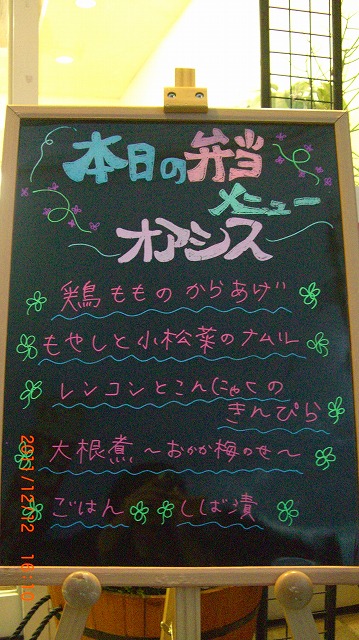 本日の弁当
メニュー
オアシス
鶏もものからあげ
もやしと小松菜のナムル
レンコンとこんにゃくの
きんぴら
大根煮〜おかか梅のせ〜
ごはん
しば漬